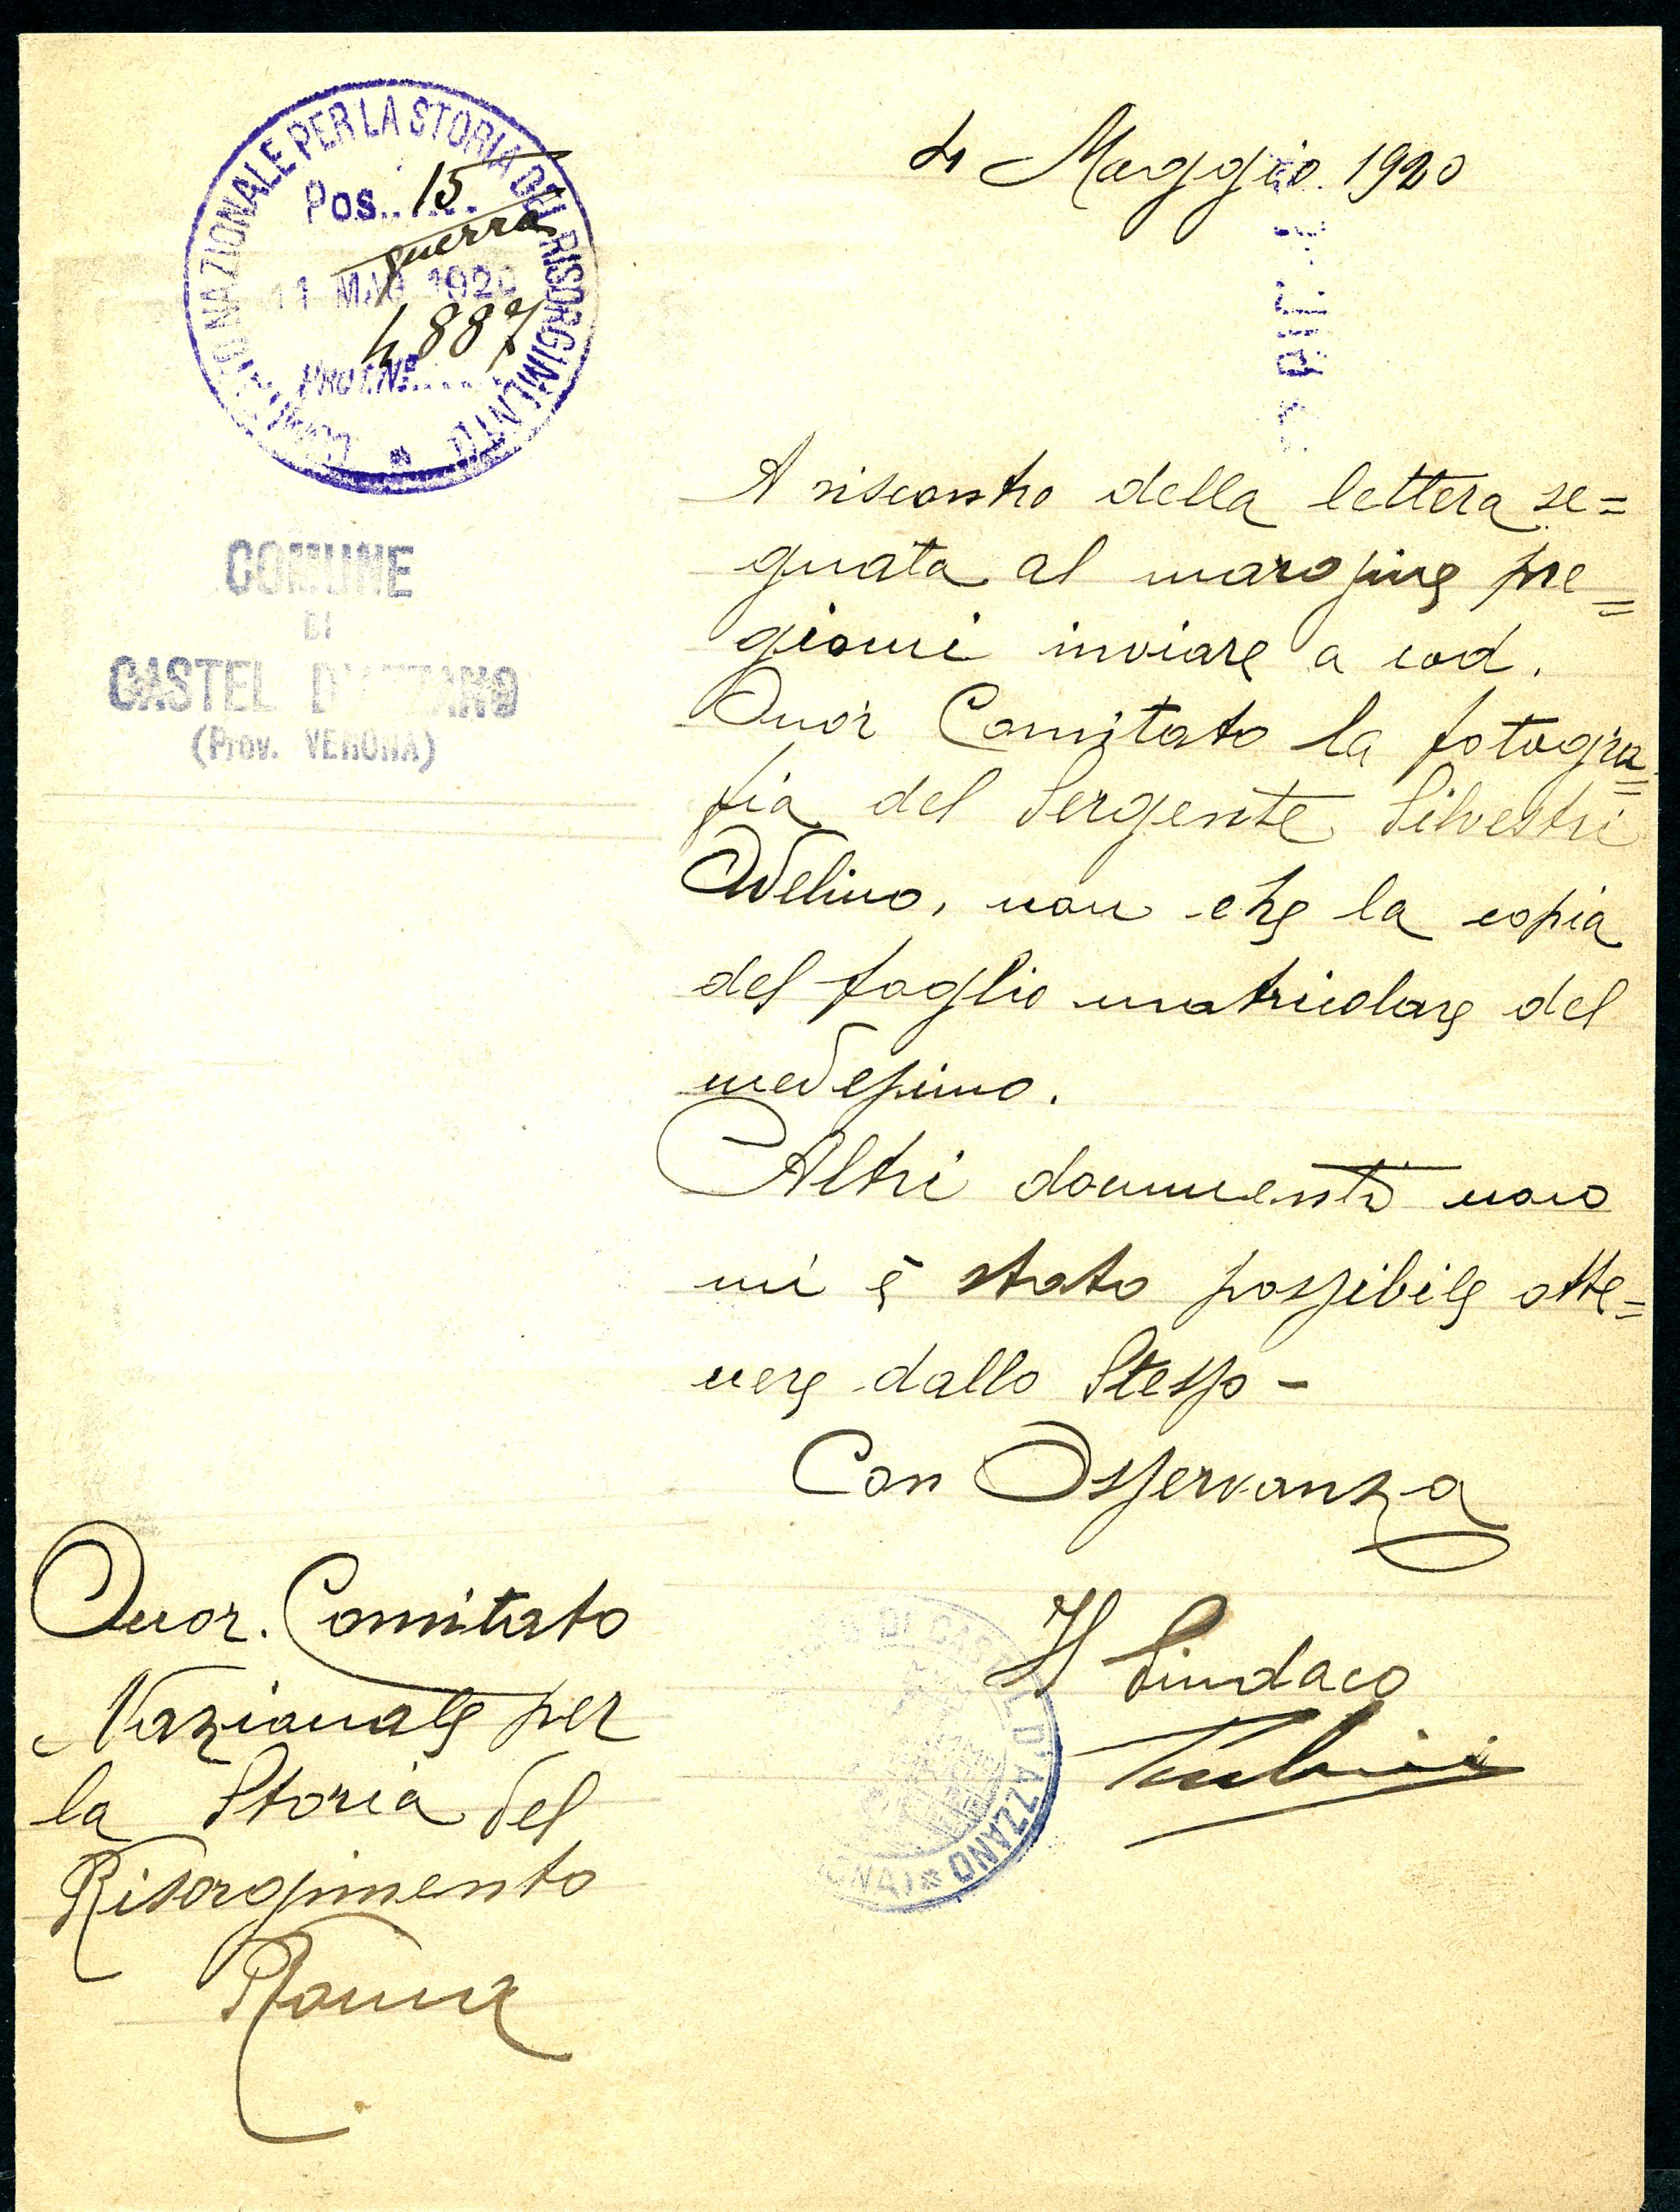 COMITATO NAZIONALE PER LA STORIA DEL RISORGIMENTO
Pos. 15
guerra
11 MAG 1920
4887
PROT. N.°
4 Maggio 1920
COMUNE
DI
CASTEL D'AZZANO
(Prov. VERONA)
A riscontro della lettera se=
gnata al margine pre=
giomi inviare a cod.
Onor Comitato la fotogra=
fia del Sergente Silvestri
Avelino, non che la copia
del foglio matricolare del
medesimo.
Altri documenti non
mi è stato possibile otte=
nere dallo Stesso -
Con Osservanza
Il Sindaco
DI CASTEL D'AZZANO
Onor. Comitato
Nazionale per
la Storia del
Risorgimento
Roma